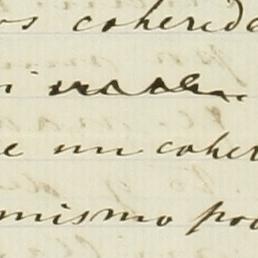 os cohered
e un coher
mismo pod